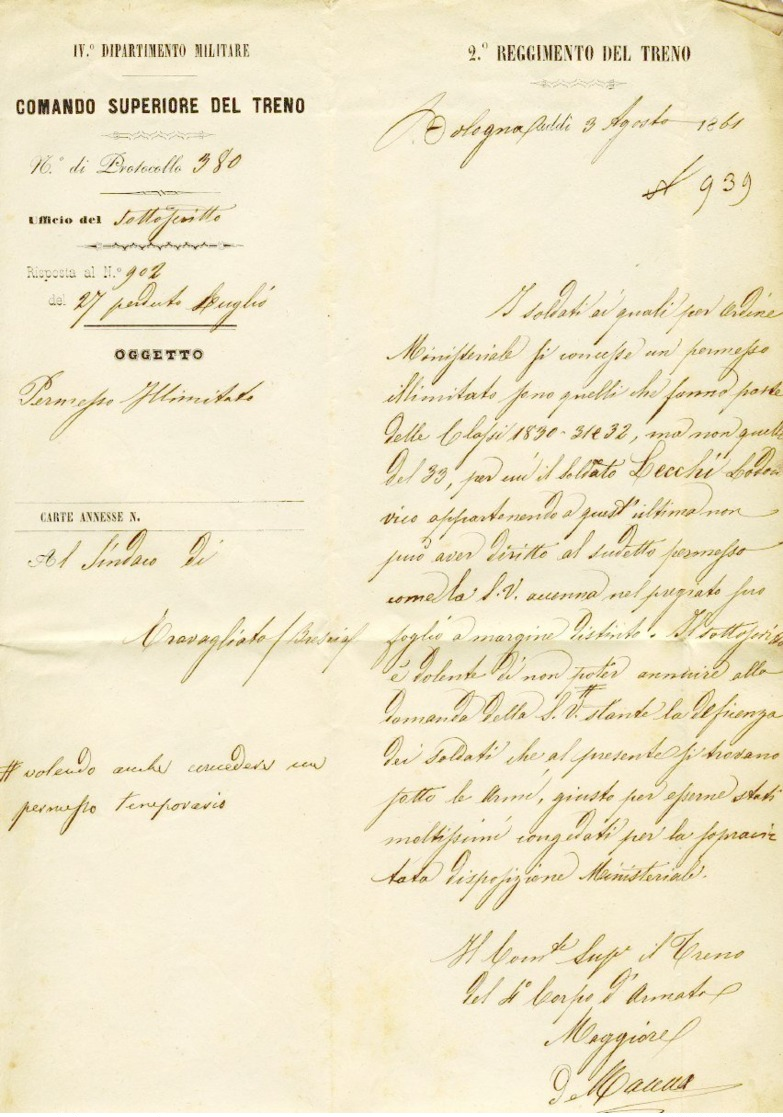 IV.º DIPARTIMENTO MILITARE
COMANDO SUPERIORE DEL TRENO
N.º di Protocollo 380
Ufficio del Sottoscritto
Risposta al N.º 902
del 27 perduto Luglio
OGGETTO
Permesso Illimitato
CARTE ANNESSE N.
Al Sindaco di
Travagliato (Brescia)
# volendo anche concedere un
permesso temporario
2.º REGGIMENTO DEL TRENO
Bologna addì 3 Agosto 1861
N 939
I soldati ai quali per Ordine
Ministeriale si concesse un permesso
illimitato sono quelli che fanno parte
delle Classi 1830-31 e 32, ma non quelli
del 33, per cui il soldato Lecchi Lodo
vico appartenendo a quest'ultima non
può aver diritto al sudetto permesso
come la S.V. accenna nel pregiato suo
foglio a margine distinto. Il sottoscritto
è dolente di non poter annuire alla
domanda della S.V. # stante la deficienza
dei soldati che al presente si trovano
sotto le Armi, giusto per esserne stati
moltissimi congedati per la sopraci
tata disposizione Ministeriale.
Il Com.te Sup.e il Treno
del 4º Corpo d'Armata
Maggiore